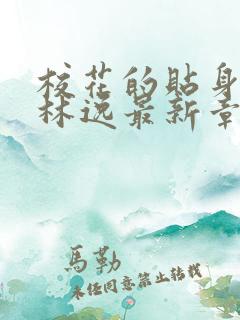 校花的贴身
林逸最新章
馬勒
未经同意禁止转载